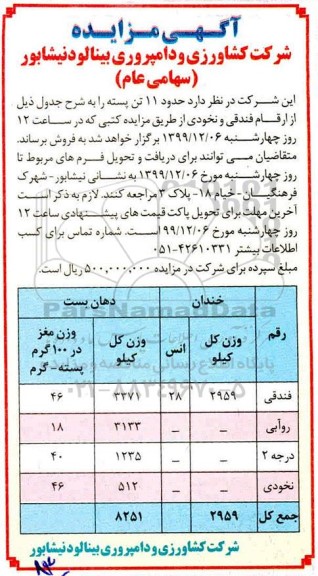 آگهـی مـزایـده
شرکت کشاورزی و دامپروری بینالود نیشابور
(سهامی عام)
این شـرکت در نظر دارد حدود ۱۱ تن پسته را به شرح جدول ذیل
از ارقـام فندقی و نخودی از طریق مزایده کتبی که در ساعت ۱۲
روز چهارشـنبه ۱۳۹۹/۱۲/۰۶ برگزار خواهد شد به فروش برساند.
متقاضیان می توانند برای دریافت و تحویل فـرم های مربوط تا
روز چهارشـنبه مورخ ۱۳۹۹/۱۲/۰۶ به نشانی نیشابور- شهرک
فرهنگیـان - خیام ۱۸- پلاک ۳ مراجعه کنند. لازم به ذکر اسـت
آخرین مهلت برای تحویل پاکت قیمت های پیشـنهادی ساعت ۱۲
روز چهارشنبه مورخ ۱۹۹/۱۲/۰۶ اسـت. شماره تماس برای کسب
اطلاعات بیشتر ۴۲۶۱۰۳۳۱-۰۵۱
مبلغ سپرده برای شرکت در مزایده ۵۰۰,۰۰۰,۰۰۰ ریال است.
رقم خندان دهان بست
وزن کل کیلو انس وزن کل کیلو وزن مغز در ۱۰۰ گرم پسته - گرم
فندقی ۲۹۵۹ ۲۸ ۳۳۷۱ ۴۶
روآبی _ _ ۳۱۳۳ ۱۸
درجه ۲ _ _ ۱۲۳۵ ۴۰
نخودی _ _ ۵۱۲ ۴۶
جمع کل ۲۹۵۹ ۸۲۵۱
شرکت کشاورزی و دامپروری بینالود نیشابور
ParsNamadData
۰۲۱-۸۸۳۴۹۶۷۰-۵